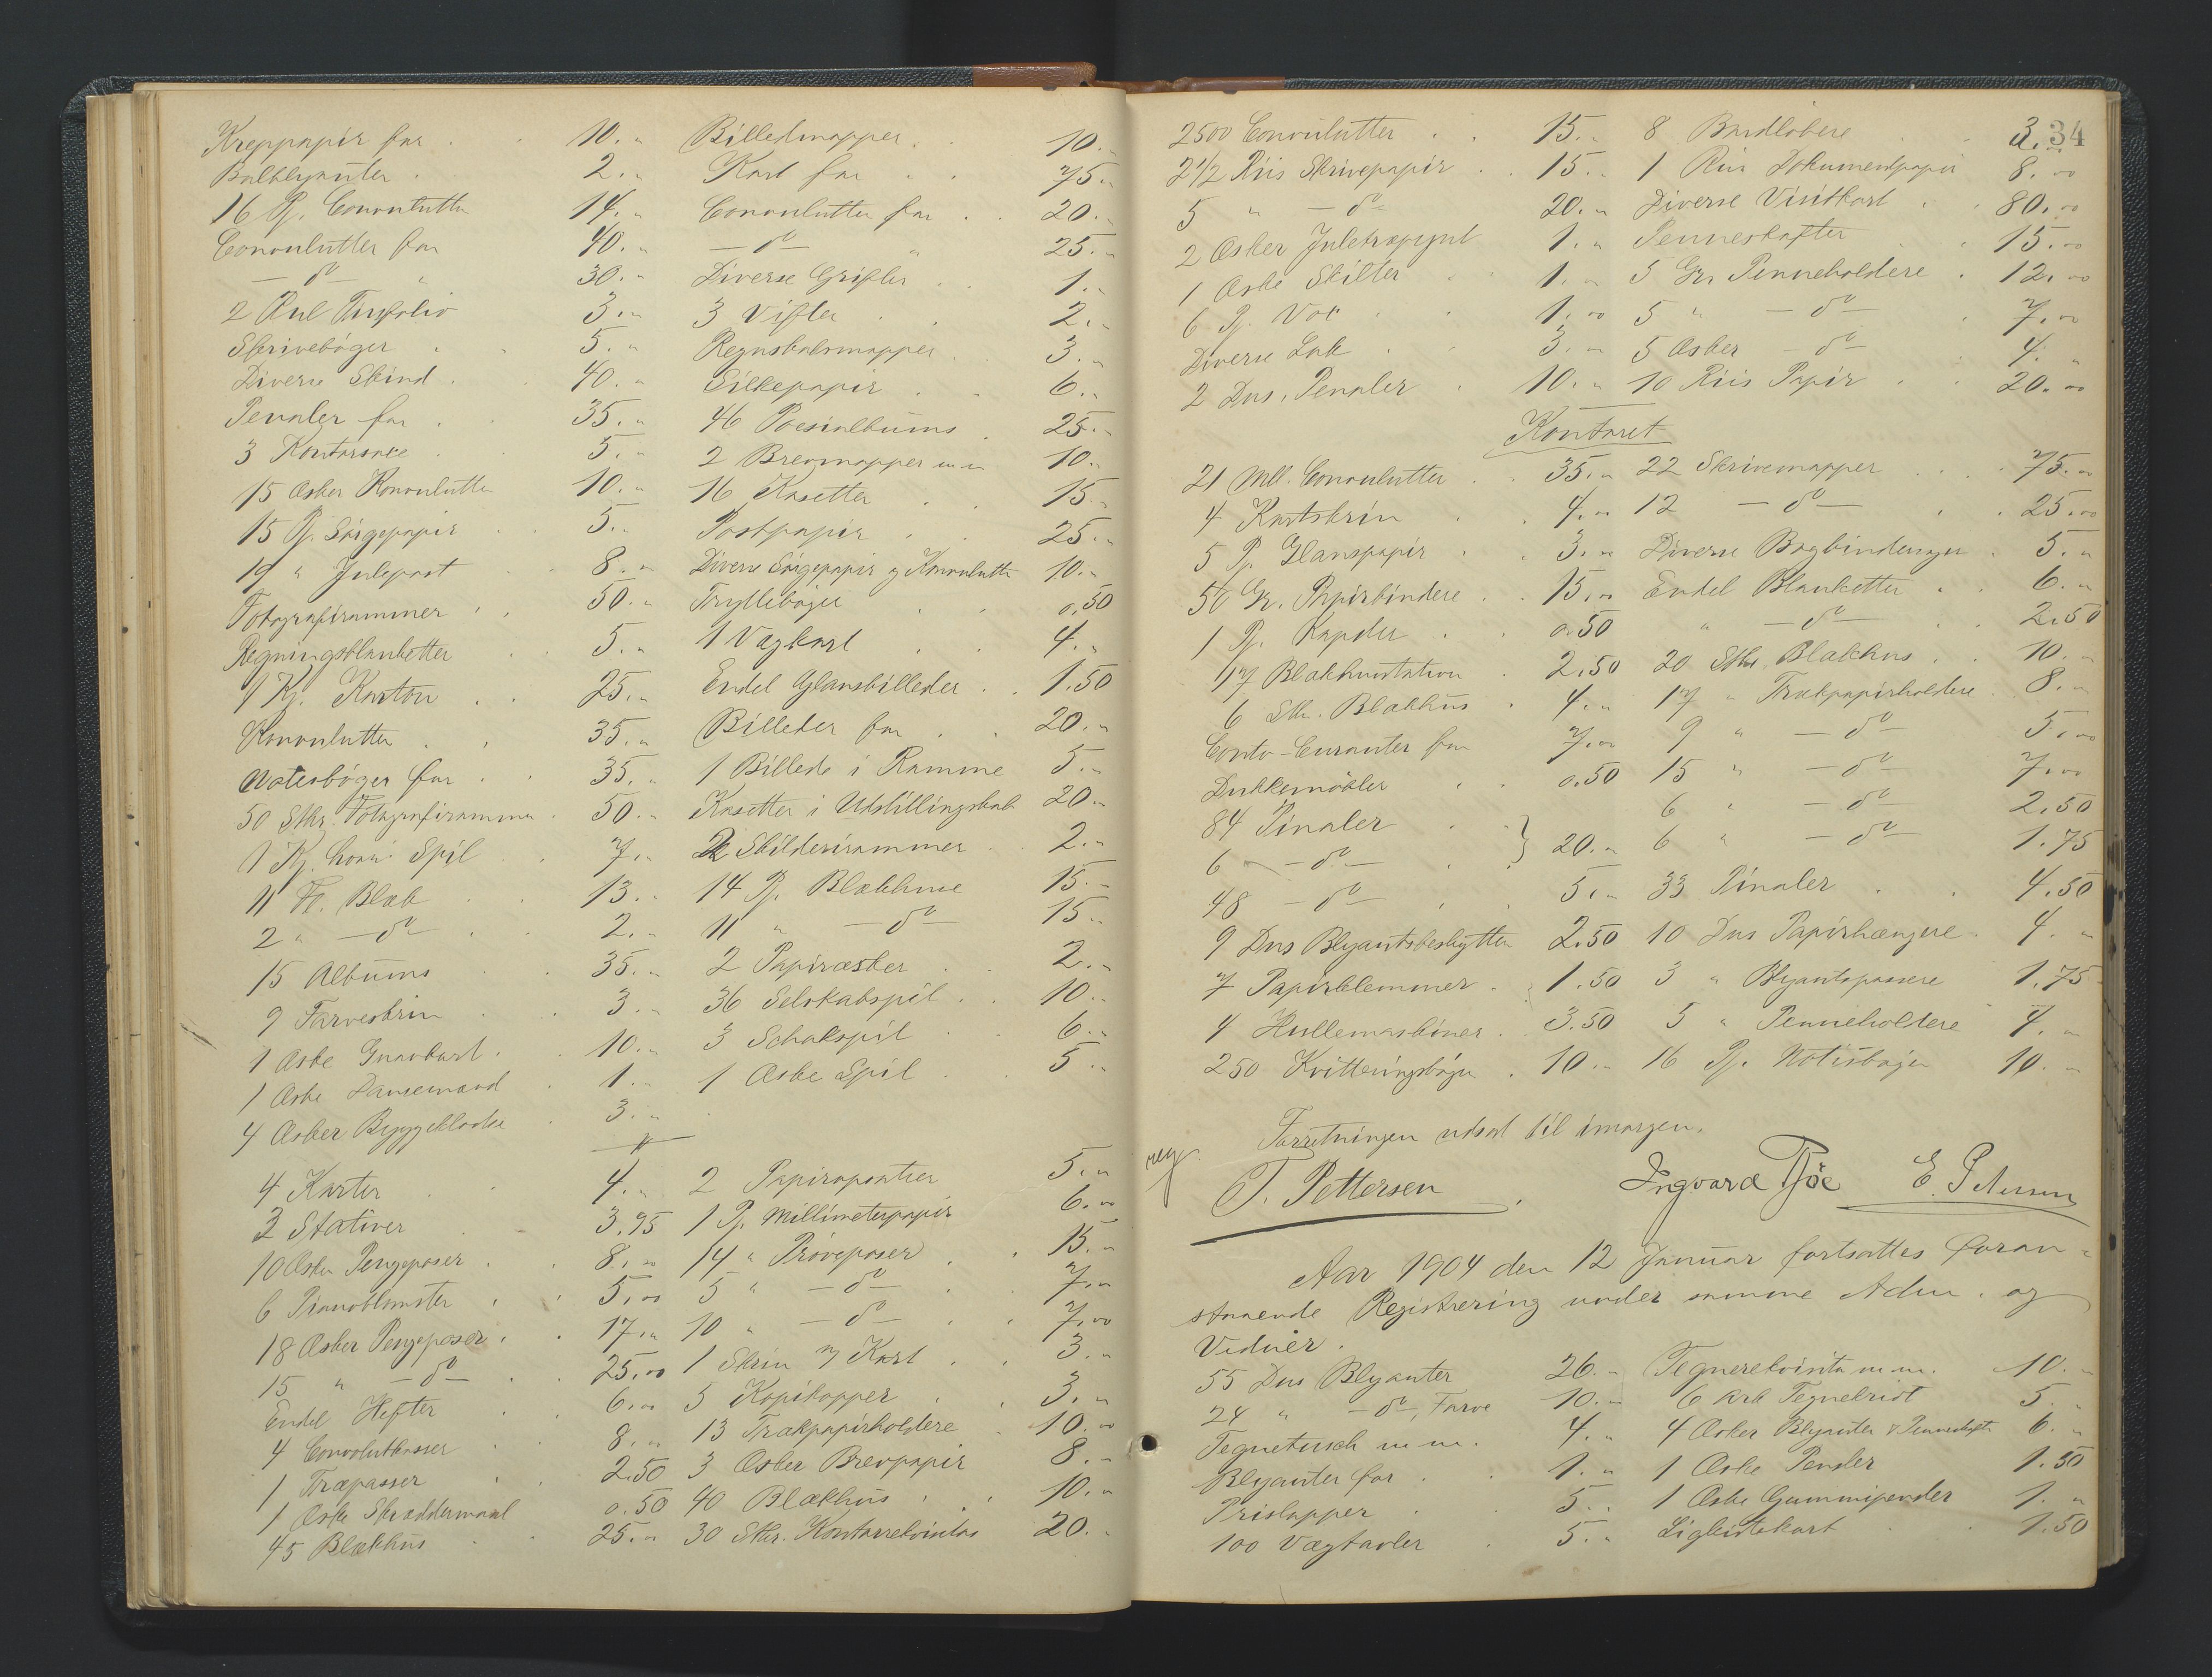 Kreppapir for 10.„
Balblyanter 2.„
16 Pj. Convolutter 14.„
Convolutter for 40.„
— do — „ 30.„
2 Rul Tinfolio 3.„
Skrivebøger 5.„
Diverse Skind 40.„
Penaler for 35.„
3 5.„
15 Æsker Konvolutter 10.„
15 Pj. Sørgepapir 5.„
19 „ Julepost 8.„
Fotografirammer 50.„
Regningsblanketter 5.„
1 Kj. Karton 25.„
Konvolutter 35.„
Notesbøger for 35.„
50 Stkr. Fotografirammer 50.„
1 Kj. Spil 7.„
11 Fl. Blæk 13.„
2 „ — do — 2.„
15 Albums 35.„
9 Farveskrin 3.„
1 Æske Gnavkort 10.„
1 Æske Dansemand 1.„
4 Æsker Byggeklodse 3.„
4 Karter 4.„
2 Stativer 3.95
10 Æsker Pengeposer 8.„
6 Pianoblomster 5.00
18 Æsker Pengeposer 17.„
15 „ — do — 25.00
Endel Hefter 6.00
4 Convolutkasser 8.„
1 Træpasser 2.50
1 Æske Skræddermaal 0.50
45 Blækhus 25.„
Billedmapper 10.„
Kort for 75.„
Convolutter for 20.„
— do — „ 25.„
Diverse Grifler 1.„
3 Vifter 2.„
Regnskabsmapper 3.„
Silkepapir 6.„
46 Poesialbums 25.„
2 Brevmapper m m 10.„
16 Kasetter 15.„
Postpapir 25.„
Diverse Sørgepapir og Konvolutter 10.„
Tryllebøger 0,50
1 Vægkart 4.„
Endel Glansbilleder 1.50
Billeder for 20.„
1 Billede i Ramme 5.„
Kasetter i Udstillingskab 20.„
2 Skilderirammer 2.„
14 Pj. Blækhuse 15.„
11 „ — do — 15.„
2 Papiræsker 2.„
36 Selskabspil 10.„
3 Schakspil 6.„
1 Æske Spil 5.„
2 Papiropsatser 5.„
1 Pj. Millimeterpapir 6.00
14 „ Prøveposer 15.„
5 „ — do — 7.„
10 „ — do — 7.00
1 Skrin m/ Kort 3.„
5 Kopikopper 3.„
13 Trækpapirholdere 10.00
3 Æsker Brevpapir 8.„
40 Blækhus 10.„
30 Stkr. Kontorrekvisitas 20.„
34
2500 Convolutter 15.„
2 1/2 Riis Skrivepapir 15.„
5 „ — do — 20.„
2 Æsker Juletræpynt 1.„
1 Æske Skilter 1.„
6 Pj. Vox 1.00
Diverse Lak 3.„
2 Dus. Penaler 10.„
8 Bordløbere 3.
1 Riis Dokumentpapir 8.00
Diverse Visitkort 80.00
Penneskafter 15.00
5 Gr. Penneholdere 12.00
5 „ — do — 7.00
5 Æsker — do — 4.„
10 Riis Papir 20.00
Kontoret
21 Mll. Convolutter 35.„
4 Kortskrin 4.00
5 Pj. Glanspapir 3.„
50 Gr. Papirbindere 15.00
1 Pj. Kapsler 0.50
17 Blækhusstation 2.50
6 Stkr. Blækhus 4.„
Conto-Curanter for 7.00
Dukkemøbler 0.50
84 Pinaler
6 — do — } 20.„
48 — do — 5.„
9 Dus Blyantsbeskytter 2.50
7 Papirklemmer 1.50
4 Hullemaskiner 3.50
250 Kvitteringsbøger 10.„
22 Skrivemapper 75.„
12 — do — 25.00
Diverse Bogbindersager 5.„
Endel Blanketter 6.„
„ — do — 2.50
20 Stkr. Blækhus 10.„
17 „ Trækpapirholdere 8.„
9 „ — do — 5.00
15 „ — do — 7.00
6 „ — do — 2.50
6 „ — do — 1.75
33 Pinaler 4.50
10 Dus Papirhængere 4.„
3 „ Blyantspassere 1.75
5 „ Penneholdere 4.„
16 Pj. Notisbøger 10.„
Forretningen udsat til imorgen.
reg
T. Pettersen Ingvard Tjøe E. Petersen
Aar 1904 den 12 Januar fortsattes foran-
staaende Registrering under samme Adm. og
Vidner.
55 Dus Blyanter 26.„
24 „ — do —, Farve 10.„
Tegnetusch m m. 4.„
Blyanter for 1.„
Prislapper 5.„
100 Vægtavler 5.„
Tegnerekvisita m m. 10.„
6 Ark Tegnekridt 5.„
4 Æsker Blyanter & Penneskafter 6.„
1 Æske Pensler 1.50
1 Æske Gummipensler 1.„
Ligkistekort 1.50